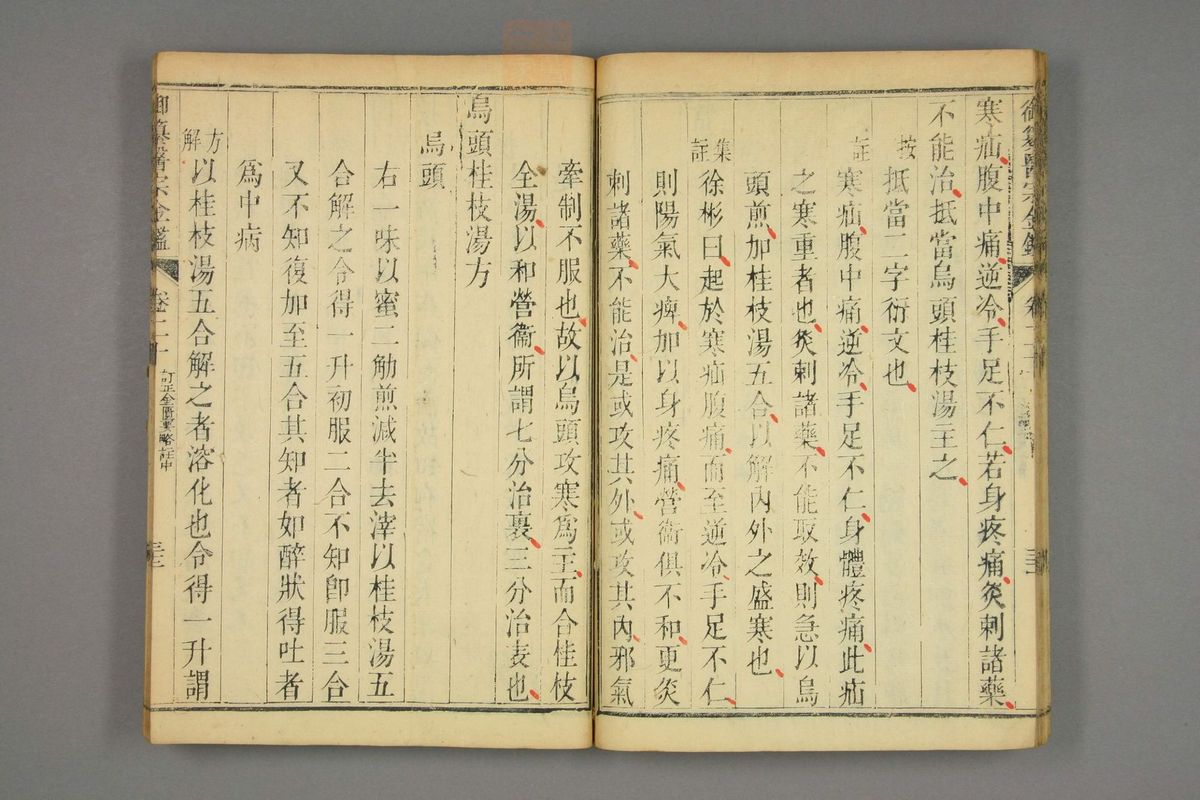 寒疝腹中痛逆冷手足不仁若身疼痛灸刺諸藥
不能治抵當烏頭桂枝湯主之
按
抵當二字衍文也
註
寒疝腹中痛逆冷手足不仁身體疼痛此疝
之寒重者也灸刺諸藥不能取效則急以烏
頭煎加桂枝湯五合以解內外之盛寒也
集註
徐彬曰起於寒疝腹痛而至逆冷手足不仁
則陽氣大痺加以身疼痛營衞俱不和更灸
刺諸藥不能治是或攻其外或攻其內邪氣
牽制不服也故以烏頭攻寒爲主而合桂枝
全湯以和營衞所謂七分治裏三分治表也
烏頭桂枝湯方
烏頭
右一味以蜜二觔煎減半去滓以桂枝湯五
合解之令得一升初服二合不知卽服三合
又不知復加至五合其知者如醉狀得吐者
爲中病
方解
以桂枝湯五合解之者溶化也令得一升謂
御纂醫宗金鑑
卷二十
訂正金匱要略註中